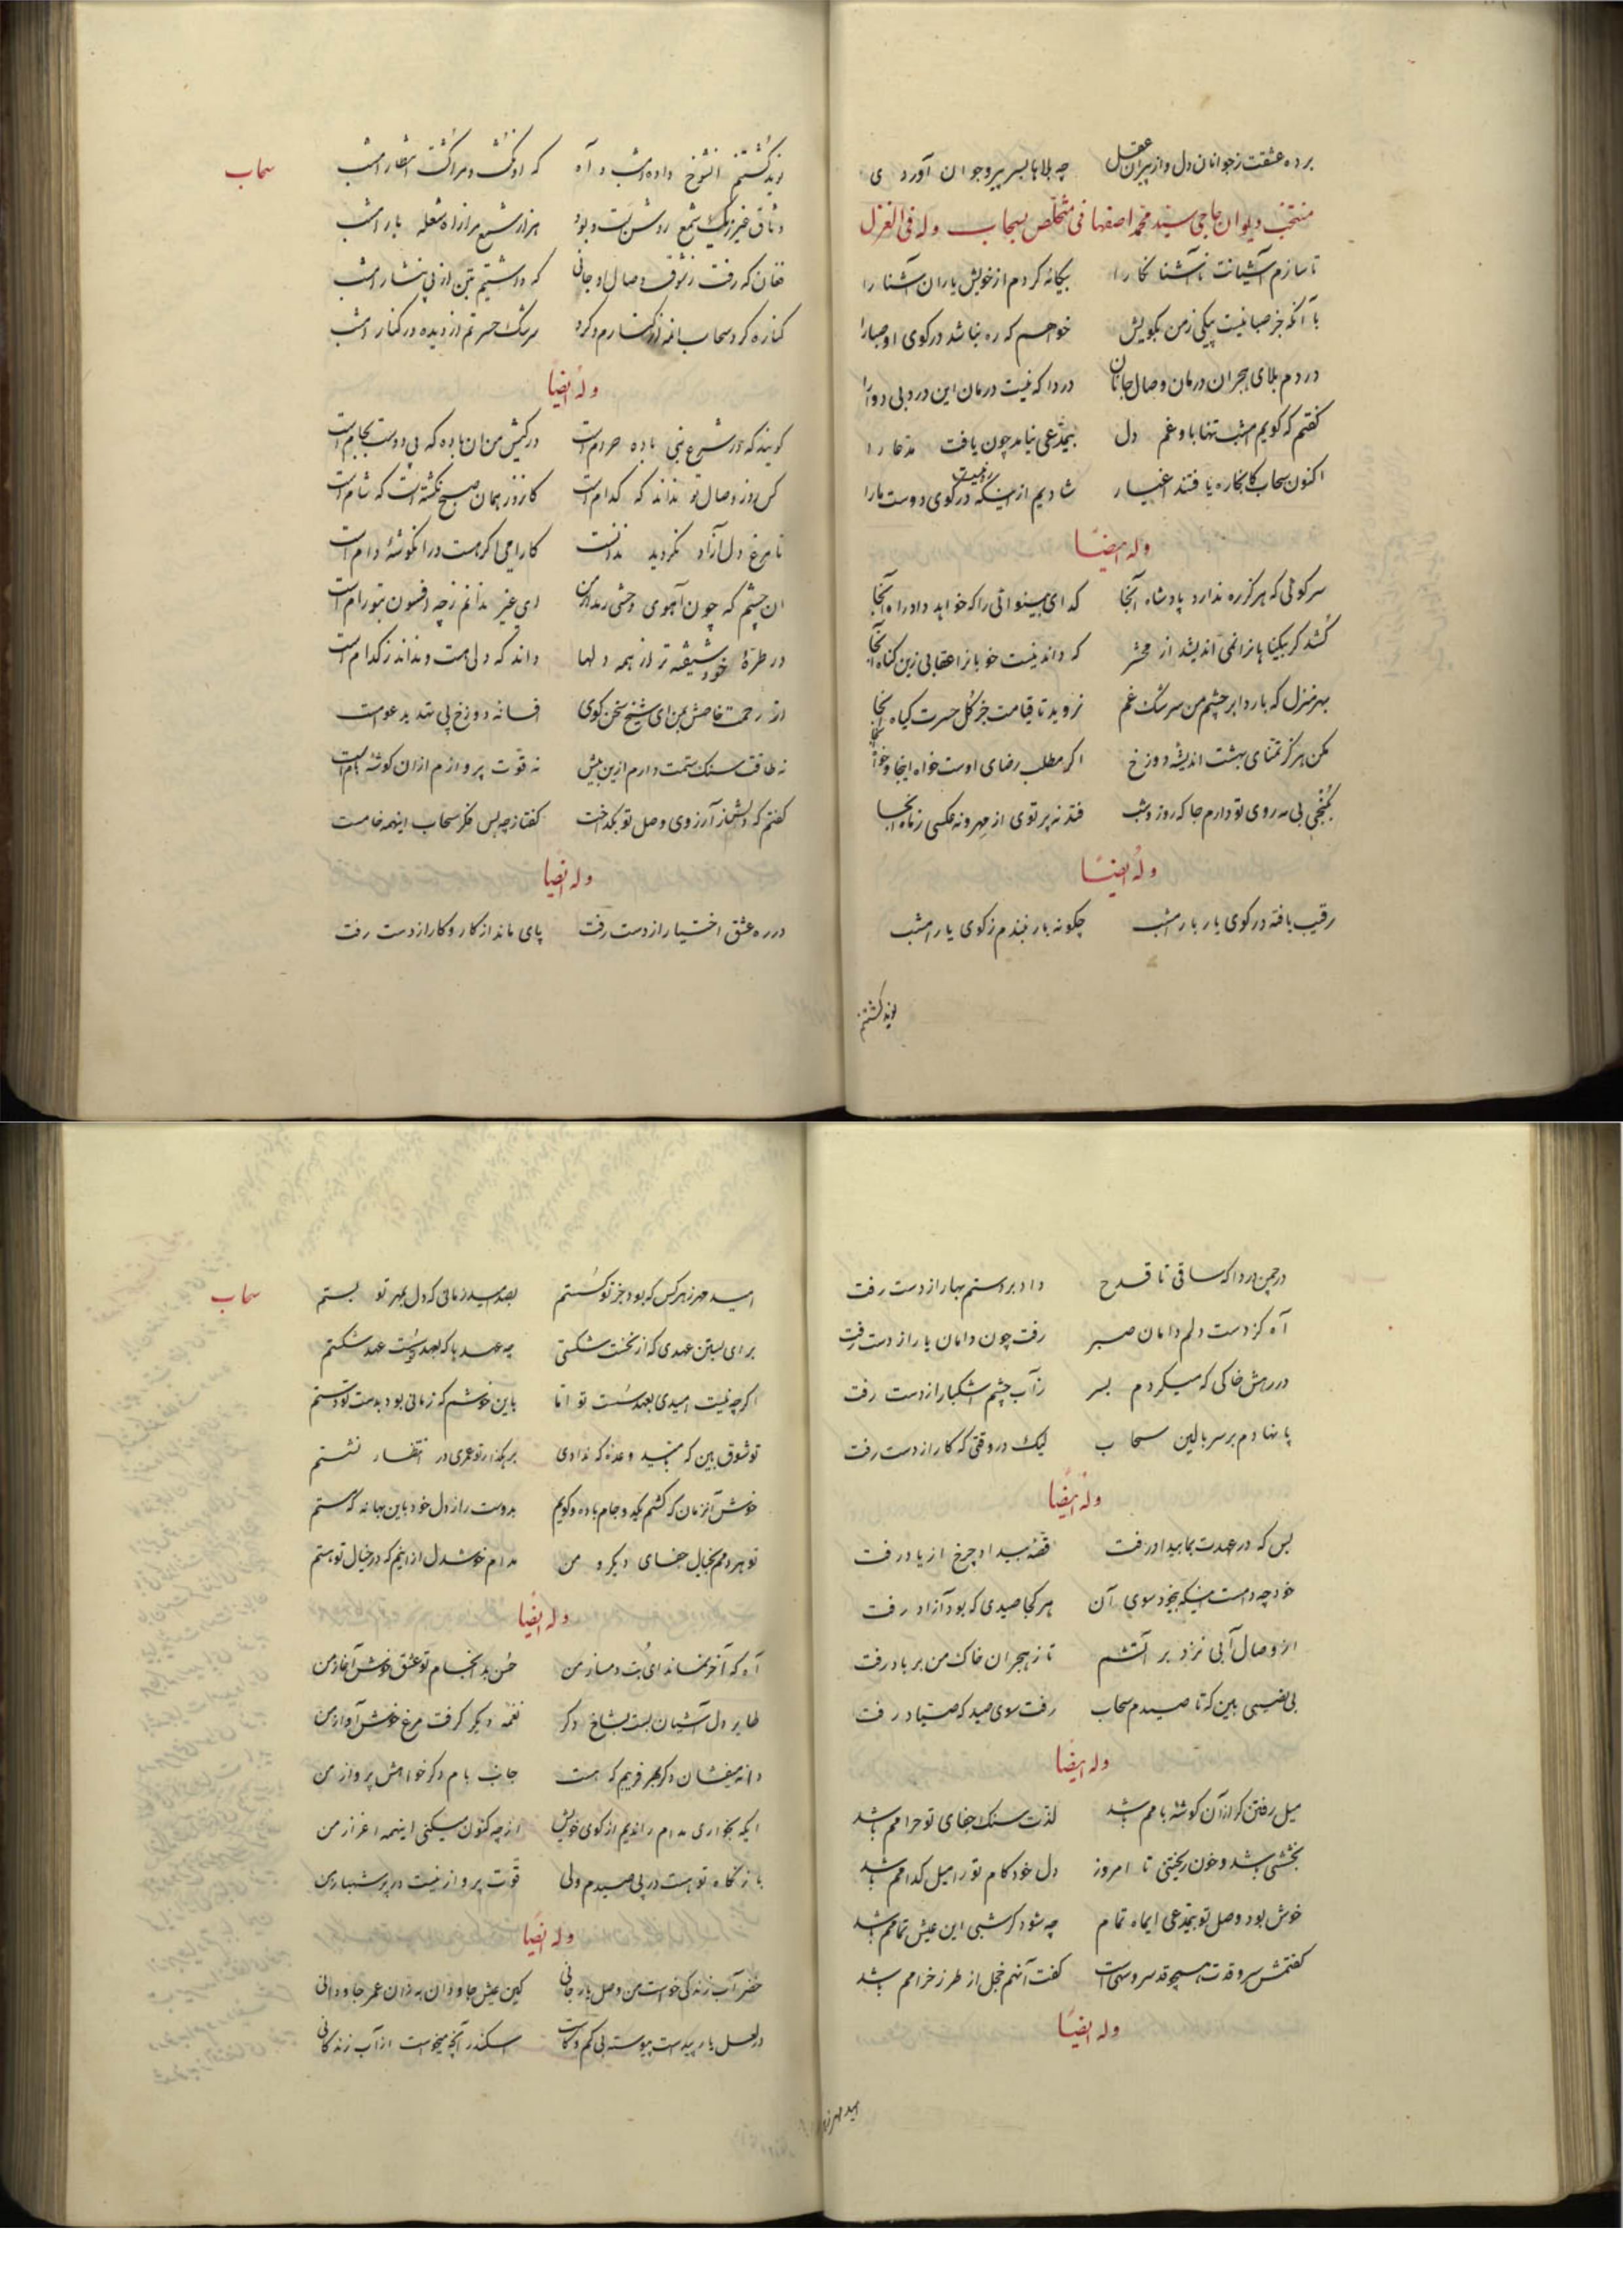 برده عشقت ز جوانان دل و از پیران عقل چه بلاها بسر پیر و جوان آوردی
منتخب دیوان حاجی سید محمد اصفهانی متخلص بسحاب وله فی الغزل
تا سازم آشنایت ناآشنا نگارا بیگانه کردم از خویش یاران آشنا را
با آنکه جز صبا نیست پیکی ز من بکویش خواهم که ره نباشد در کوی او صبا را
دردم بلای هجران درمان وصال جانان دردا که نیست درمان این درد بی دوا را
گفتم که گویم امشب تنها باو غم دل بی مدعی نیامد چون یافت مدعا را
اکنون سحاب کانجا ره یافتند اغیار شادیم از اینکه ره نیست در کوی دوست ما را
وله ایضاً
سر کوئی که هرگز ره ندارد پادشاه آنجا گدای بینوائی را که خواهد داد راه آنجا
کشد گر بیگناهانرا نمی اندیشد از محشر که داند نیست خوبانرا عقابی زین گناه آنجا
بهر منزل که بارد ابر چشم من سرشک غم نروید تا قیامت جز گل حسرت گیاه آنجا
مکن هرگز تمنای بهشت اندیشه دوزخ اگر مطلب رضای اوست خواه اینجا و خواه آنجا
بکنجی بی مه روی تو دارم جا که روز و شب فتد نه پرتوی از مهر و نه عکسی ز ماه آنجا
وله ایضاً
رقیب یافته در کوی یار بار امشب چگونه بار نبندم ز کوی یار امشب
نوید کشتنم
سحاب
نوید کشتنم آنشوخ داده امشب و آه که او نکشت و مرا کشت انتظار امشب
وثاق غیر ز یک شمع روشن است و بود هزار شمع مرا از راه شعله بار امشب
فغان که رفت ز شوق وصال او جانی که داشتیم بتن از پی نثار امشب
کناره کرد سحاب آنمه از کنارم و کرد سرشک حسرتم از دیده در کنار امشب
وله ایضاً
گویند که در شرع نبی باده حرام است در کیش من آن باده که بی دوست بجام است
کس روز وصال تو نداند که کدام است کانروز همان صبح نگشته است که شام است
تا مرغ دل آزاد نگردید ندانست کارامی اگر هست در آن گوشه دام است
آن چشم که چون آهوی وحشی رمد از من ای غیر ندانم ز چه افسون بتو رام است
در طره خود شیفته تر از همه دلها داند که دلی هست و نداند ز کدام است
از رحمت خاصش بمن ای شیخ سخن گوی افسانه دوزخ پی تهدید عوام است
نه طاقت سنگ ستمت دارم ازین بیش نه قوت پروازم از آن گوشه بام است
گفتم که دلش ز آرزوی وصل تو بگداخت گفتا ز چه پس فکر سحاب اینهمه خام است
وله ایضاً
در ره عشق اختیار از دست رفت پای ماند از کار و کار از دست رفت
در چمن دردا که ساقی تا قدح داد بر دستم بهار از دست رفت
آه کز دست دلم دامان صبر رفت چون دامان یار از دست رفت
در رهش خاکی که میکردم بسر ز آب چشم اشکبار از دست رفت
پا نهادم بر سر بالین سحاب لیک در وقتی که کار از دست رفت
وله ایضاً
بس که در عهدت بما بیداد رفت قصه بیداد چرخ از یاد رفت
خود چه دامست اینکه بیخود سوی آن هر کجا صیدی که بود آزاد رفت
از وصال آبی نزد بر آتشم تا ز هجران خاک من بر باد رفت
بی نصیبی بین که تا صیدم سحاب رفت سوی صید گه صیاد رفت
وله ایضاً
میل رفتن گر از آن گوشه بامم باشد لذت سنگ جفای تو حرامم باشد
بخششی باشد و خون ریختنی تا امروز دل خود کام تو را میل کدامم باشد
خوش بود وصل تو بی مدعی ای ماه تمام چه شود گر شبی این عیش تمامم باشد
گفتمش سرو قدت همچو قد سرو سهی است گفت آنهم خجل از طرز خرامم باشد
وله ایضاً
امید مهر ز
سحاب
امید مهر ز هر کس که بود جز تو گسستم بصد امید زمانی که دل بمهر تو بستم
برای بستن عهدی که از نخست شکستی چه عهدها که بعهد سست عهد شکستم
اگرچه نیست امیدی بعهد سست تو اما باین خوشم که زمانی بود بدست تو دستم
تو شوق بین که بامید وعده که ندادی برهگذار تو عمری در انتظار نشستم
خوش آنزمان که کشم یک دو جام باده و گویم بدوست راز دل خود باین بهانه که مستم
تو هر دمم بخیال جفای دیگر و من مدام خوشدل از اینم که در خیال تو هستم
وله ایضاً
آه که آخر نماند ای بت دمساز من حسن بد انجام تو عشق خوش آغاز من
طایر دل آشیان بست بشاخ دگر نغمه دیگر گرفت مرغ خوش آواز من
دانه میفشان دگر بهر فریبم که هست جانب بام دگر خواهش پرواز من
ایکه بخواری مدام راندیم از کوی خویش از چه کنون میکنی اینهمه اعزاز من
باز نگاه تو هست در پی صیدم ولی قوت پرواز نیست در پر شهباز من
وله ایضاً
خضر آب زندگی خواست من وصل یار جانی کین عیش جاودان به زان عمر جاودانی
در لعل یار پیداست پیوسته بی کم و کاست اسکندر آنچه میخواست از آب زندگانی